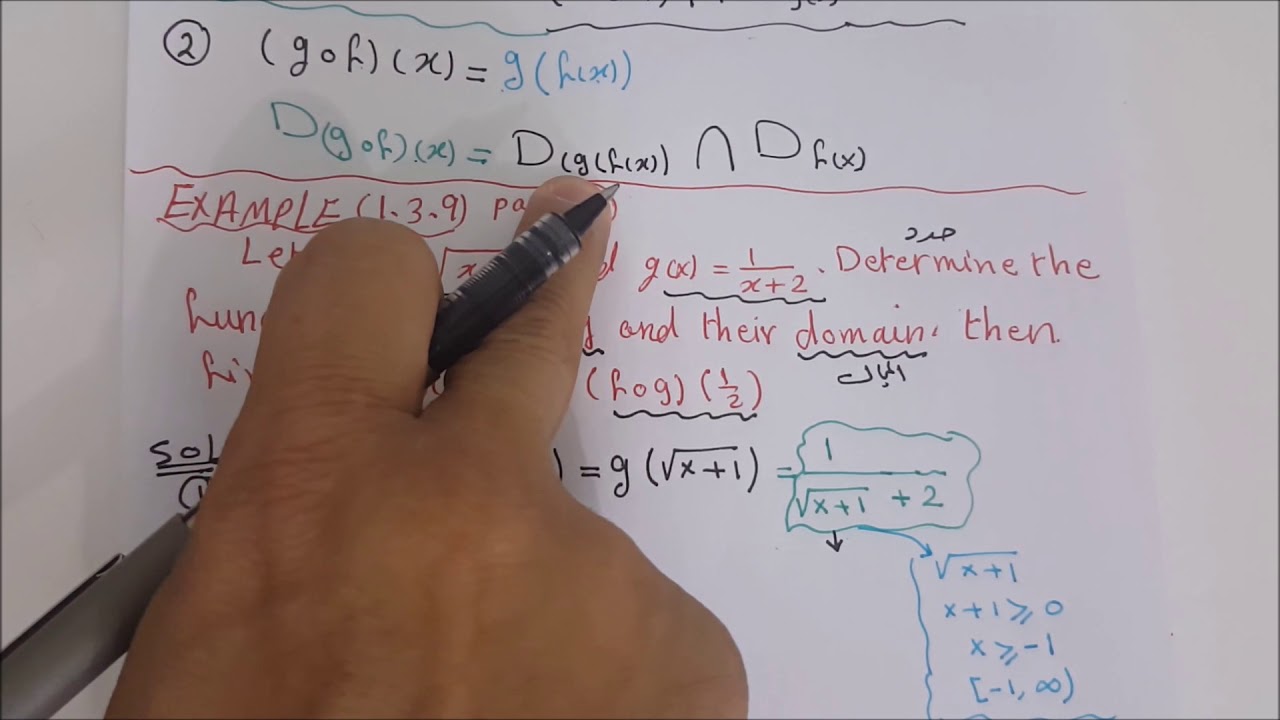 ② (goh)(x) = g(h(x))
D(goh)(x) = D(g(h(x)) ∩ Dh(x)
EXAMPLE (1.3.9)
حدد
Let g(x) = 1/(x+2). Determine the
and their domain. then
المجال
(hog)(1/2)
SOL
① = g(√(x+1)) = 1/(√(x+1) + 2)
√(x+1)
x+1 ⩾ 0
x ⩾ -1
[-1, ∞)